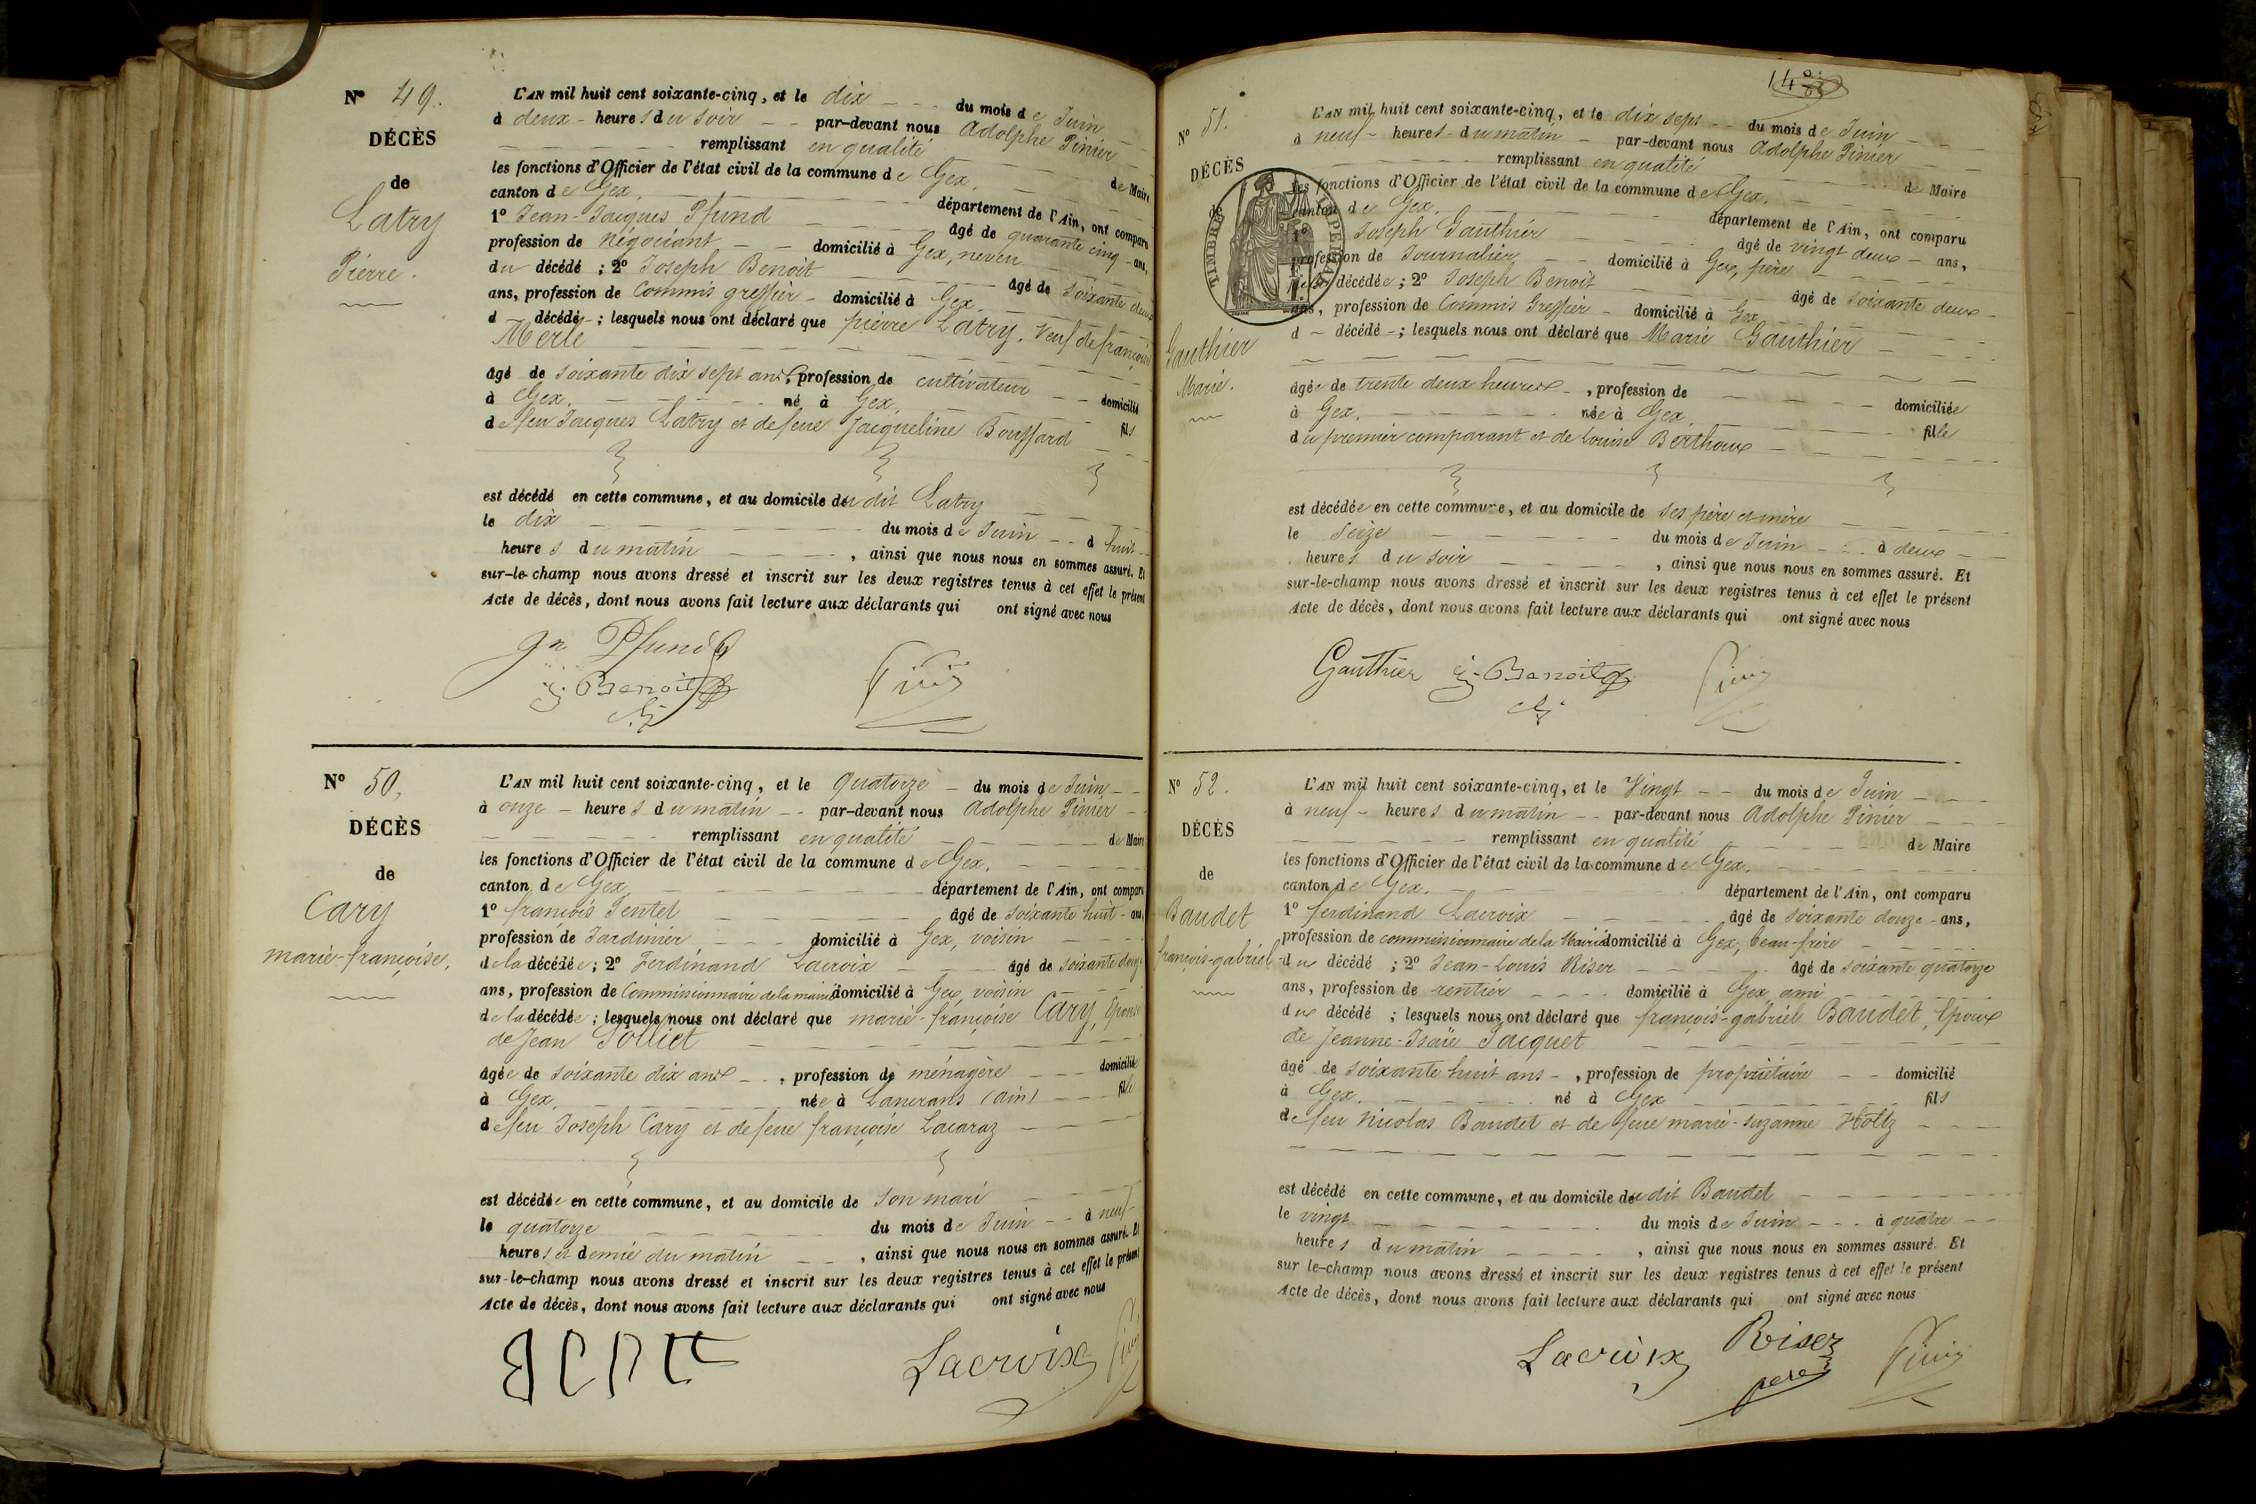 N° 49.
DÉCÈS
de
Latry
Pierre.
L'AN mil huit cent soixante-cinq, et le dix du mois de Juin
à deux heures du soir par-devant nous Adolphe Pinier
remplissant en qualité de Maire
les fonctions d'Officier de l'état civil de la commune de Gex,
canton de Gex, département de l'Ain, ont comparu
1° Jean-Jacques Pfund âgé de quarante cinq ans,
profession de négociant domicilié à Gex, neveu
du décédé ; 2° Joseph Benoit âgé de soixante deux
ans, profession de Commis greffier domicilié à Gex,
d décédé ; lesquels nous ont déclaré que pierre Latry, Veuf de françoise
Merle
âgé de soixante dix sept ans, profession de cultivateur domicilié
à Gex, né à Gex, fils
de feu Jacques Latry et de feue Jacqueline Bouffard
est décédé en cette commune, et au domicile du dit Latry
le dix du mois de Juin à huit
heures du matin, ainsi que nous nous en sommes assuré. Et
sur-le-champ nous avons dressé et inscrit sur les deux registres tenus à cet effet le présent
Acte de décès, dont nous avons fait lecture aux déclarants qui ont signé avec nous
Jn Pfund
j. Benoit
Pinier
N° 50,
DÉCÈS
de
Cary
marie-françoise,
L'AN mil huit cent soixante-cinq, et le quatorze du mois de Juin
à onze heures du matin par-devant nous Adolphe Pinier
remplissant en qualité de Maire
les fonctions d'Officier de l'état civil de la commune de Gex,
canton de Gex, département de l'Ain, ont comparu
1° françois Tentet âgé de soixante huit ans,
profession de Jardinier domicilié à Gex, voisin
de la décédée ; 2° Ferdinand Lacroix âgé de soixante douze
ans, profession de Commissionnaire de la mairie domicilié à Gex, voisin
de la décédée ; lesquels nous ont déclaré que marie-françoise Cary, Epouse
de Jean Polliet
âgée de soixante dix ans, profession de ménagère domiciliée
à Gex, née à Lancrans (ain) fille
de feu Joseph Cary et de feue françoise Lacaraz
est décédée en cette commune, et au domicile de son mari
le quatorze du mois de Juin à neuf
heures et demie du matin, ainsi que nous nous en sommes assuré. Et
sur-le-champ nous avons dressé et inscrit sur les deux registres tenus à cet effet le présent
Acte de décès, dont nous avons fait lecture aux déclarants qui ont signé avec nous
Lacroix
Pinier
148
N° 51.
DÉCÈS
de
TIMBRE IMPÉRIAL
Gauthier
Marie.
L'AN mil huit cent soixante-cinq, et le dix sept du mois de Juin
à neuf heures du matin par-devant nous Adolphe Pinier
remplissant en qualité de Maire
les fonctions d'Officier de l'état civil de la commune de Gex,
canton de Gex, département de l'Ain, ont comparu
1° Joseph Gauthier âgé de vingt deux ans,
profession de Journalier domicilié à Gex, père
de la décédée ; 2° Joseph Benoit âgé de soixante deux
ans, profession de Commis Greffier domicilié à Gex
d décédé ; lesquels nous ont déclaré que Marie Gauthier
âgée de trente deux heures, profession de domiciliée
à Gex, née à Gex, fille
du premier comparant et de Louise Berthoux
est décédée en cette commune, et au domicile de ses père et mère
le Seize du mois de Juin à deux
heures du soir, ainsi que nous nous en sommes assuré. Et
sur-le-champ nous avons dressé et inscrit sur les deux registres tenus à cet effet le présent
Acte de décès, dont nous avons fait lecture aux déclarants qui ont signé avec nous
Gauthier j. Benoit Pinier
N° 52.
DÉCÈS
de
Baudet
françois-gabriel
L'AN mil huit cent soixante-cinq, et le Vingt du mois de Juin
à neuf heures du matin par-devant nous Adolphe Pinier
remplissant en qualité de Maire
les fonctions d'Officier de l'état civil de la commune de Gex,
canton de Gex, département de l'Ain, ont comparu
1° ferdinand Lacroix âgé de soixante douze ans,
profession de commissionnaire de la Mairie domicilié à Gex, beau-frère
du décédé ; 2° Jean-Louis Riser âgé de soixante quatorze
ans, profession de rentier domicilié à Gex, ami
du décédé ; lesquels nous ont déclaré que françois-gabriel Baudet, Epoux
de Jeanne-Isaïe Jacquet
âgé de soixante huit ans, profession de propriétaire domicilié
à Gex, né à Gex fils
de feu Nicolas Baudet et de feue marie-suzanne Holtz
est décédé en cette commune, et au domicile du dit Baudet
le vingt du mois de Juin à quatre
heures du matin, ainsi que nous nous en sommes assuré. Et
sur le-champ nous avons dressé et inscrit sur les deux registres tenus à cet effet le présent
Acte de décès, dont nous avons fait lecture aux déclarants qui ont signé avec nous
Lacroix Riser Pinier
père